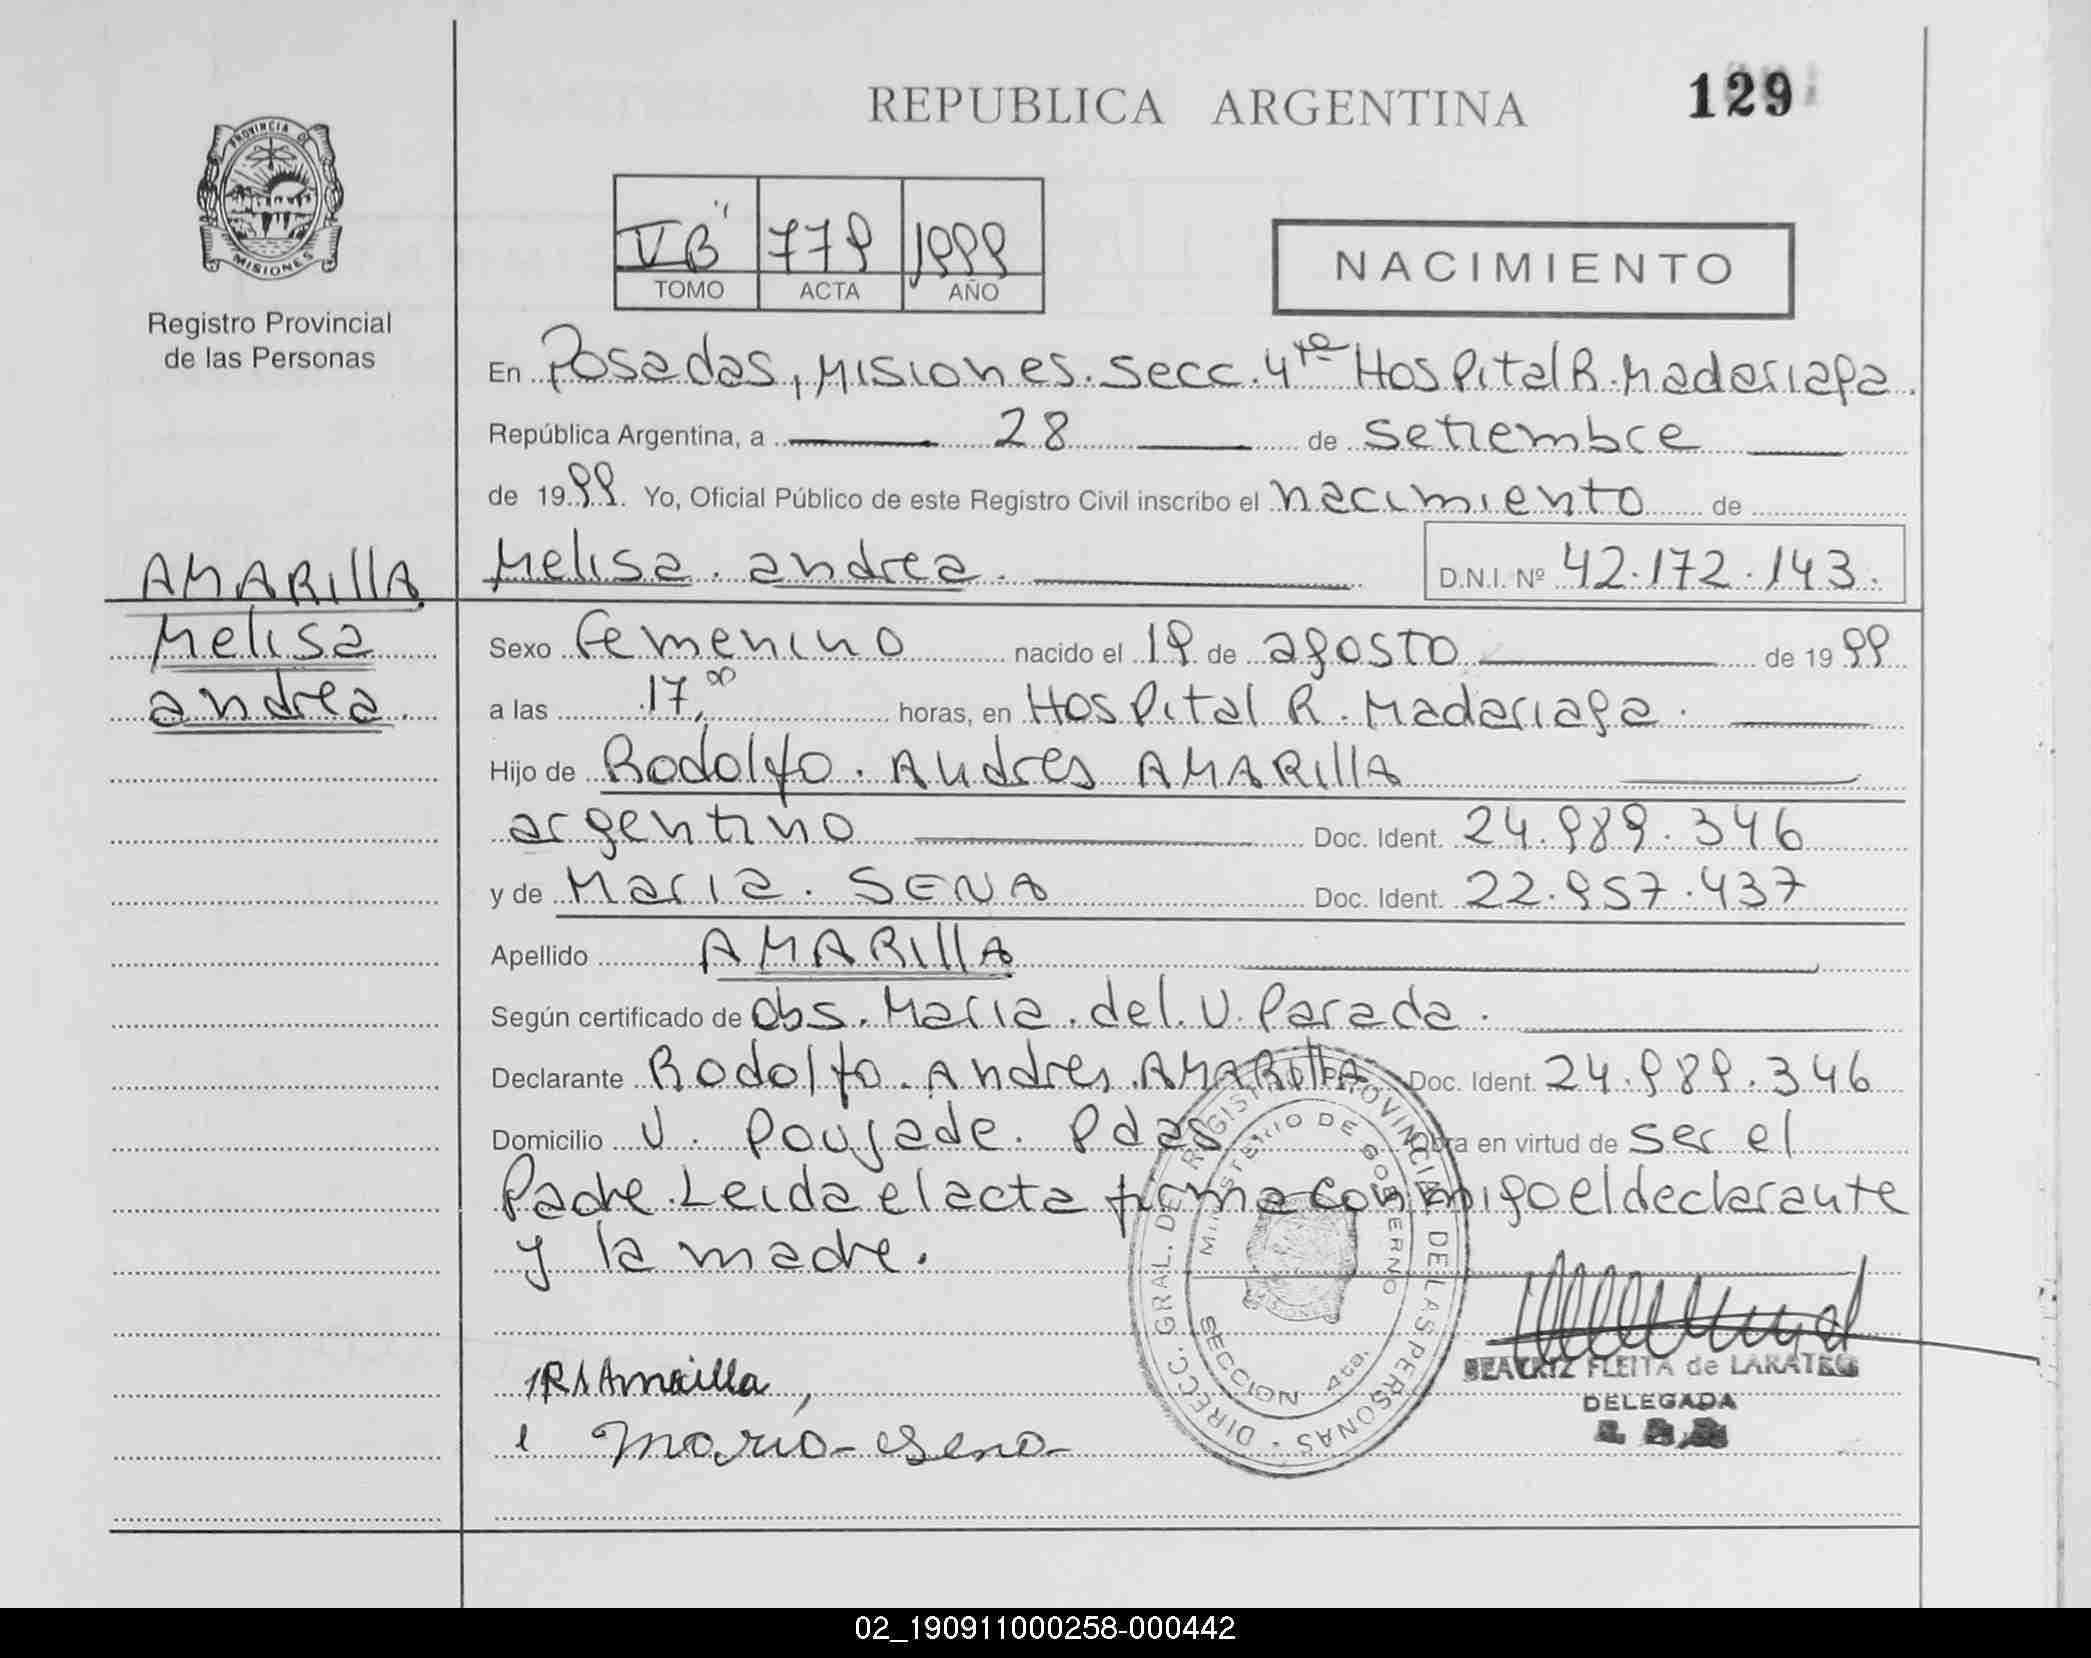 REPUBLICA ARGENTINA
129
PROVINCIA DE MISIONES
Registro Provincial
de las Personas
V "B" 779 1999
TOMO ACTA AÑO
NACIMIENTO
En Posadas, Misiones. Secc. 4ta Hospital R. Madariaga.
República Argentina, a 28 de Setiembre
de 1999. Yo, Oficial Público de este Registro Civil inscribo el nacimiento de
Melisa. andrea. D.N.I. Nº 42.172.143.
AMARILLA
Melisa
andrea.
Sexo Femenino nacido el 19 de agosto de 1999
a las 17,00 horas, en Hospital R. Madariaga.
Hijo de Rodolfo. Andres AMARILLA
argentino Doc. Ident. 24.989.346
y de Maria. SENA Doc. Ident. 22.957.437
Apellido AMARILLA
Según certificado de Obs. Maria. del. V. Parada.
Declarante Rodolfo. Andres. AMARILLA Doc. Ident. 24.989.346
Domicilio V. Poujade. Pdas Obra en virtud de ser el
Padre. Leida el acta firma conmigo el declarante
y la madre.
DIRECC. GRAL. DEL REGISTRO PROVINCIAL DE LAS PERSONAS
MINISTERIO DE GOBIERNO
SECCION 4ta.
R A Amarilla
Maria Sena
BEATRIZ FLEITA de
DELEGADA
02_190911000258-000442